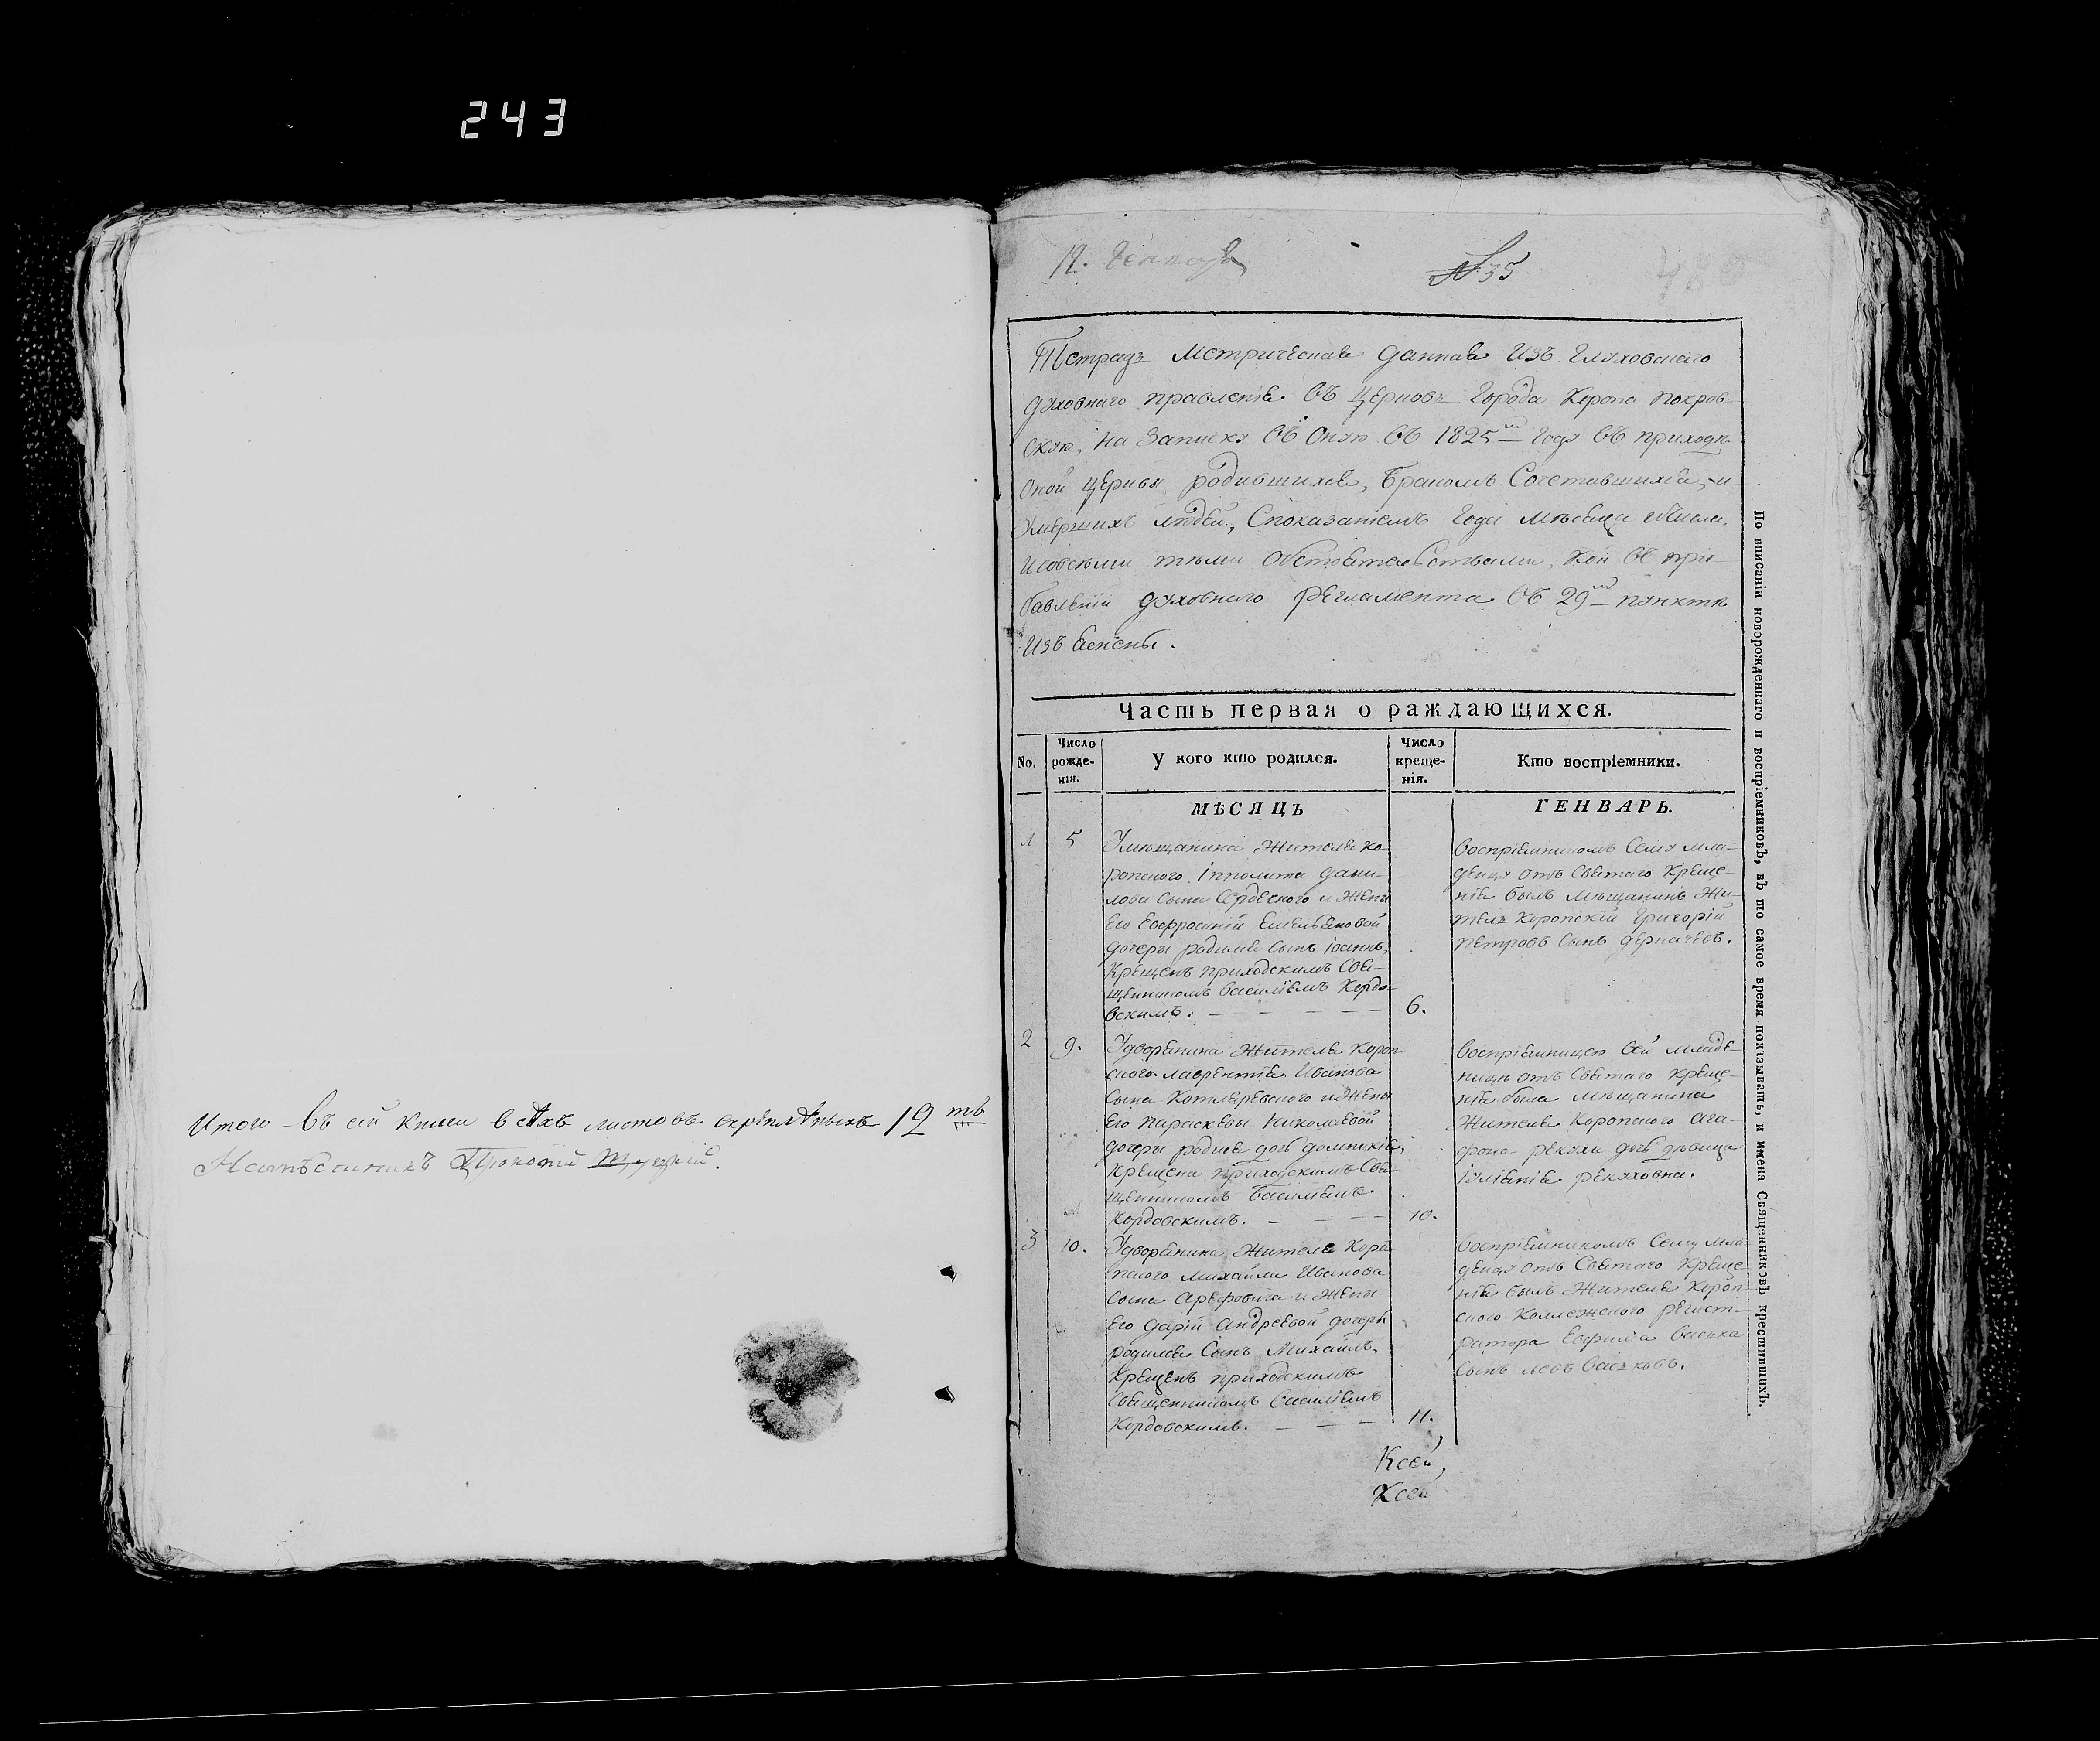 243
Итого въ сей книги всѣхъ листовъ скрѣпленныхъ 12 ть
Намѣстникъ Прокопій
12. Генваря
№ 35
Тетрадь Метрическая данная изъ Глуховскаго
духовнаго правленія въ Церковь Города Коропа Покров-
скую, на записку въ оную въ 1825 м году въ приходѣ
оной церкви родившихся, Бракомъ Сочетавшихся, и
умершихъ людей, Споказаніемъ года мѣсяца и числа,
исовсѣми тѣми обстоятельствами, кои въ при-
бавленіи духовнаго регламента въ 29 м пунктѣ
изъяснены.
Часть первая о раждающихся.
No.
Число рожде- нія.
У кого кто родился.
Число креще- нія.
Кто воспріемники.
МѢСЯЦЪ
ГЕНВАРЬ.
1
5
Умѣщанина Жителя Ко-
ропского Іпполита Дани-
лова сына Сердѣского и Жены
его Евфросиніи Емельяновой
дочери родился сынъ Іоаннъ,
Крещенъ приходскимъ Свя-
щенникомъ Василіемъ Кордо-
вскимъ.
6.
воспріемникомъ Сему мла-
денцу отъ Святаго Креще-
нія былъ Мѣщанинъ Жи-
тель Коропскій Григорій
Петровъ сынъ Дергачевъ.
2
9.
Удворянина Жителя Короп-
ского Лаврентія Иванова
сына Котляревского и Жены
его Параскевы Николаевой
дочери родися дочь Домникія,
Крещена приходскимъ Свя-
щенникомъ Василіемъ
Кордовскимъ.
10.
воспріемницею сей младе-
ницѣ отъ Святаго Креще-
нія была мѣщанина
Жителя Коропского Ага-
фона Рекухи дочь дѣвица
Іуліанія Рекуховна.
3
10.
Удворянина Жителя Коро-
пского Михаила Иванова
сына Арефовича и Жены
его Даріи Андреевой дочери
родился Сынъ Михаилъ,
Крещенъ приходскимъ
Священникомъ Василіемъ
Кордовскимъ.
11.
воспріемникомъ Сему мла-
денцу отъ Святаго Креще-
нія былъ Жителя Короп-
ского Коллежского регист-
ратора Евфима Саська
сынъ Левъ Саськовъ.
Ксей
Ксей
По вписаніи новорожденнаго и воспріемниковъ, въ то самое время показывать, и имена Священниковъ крестившихъ.